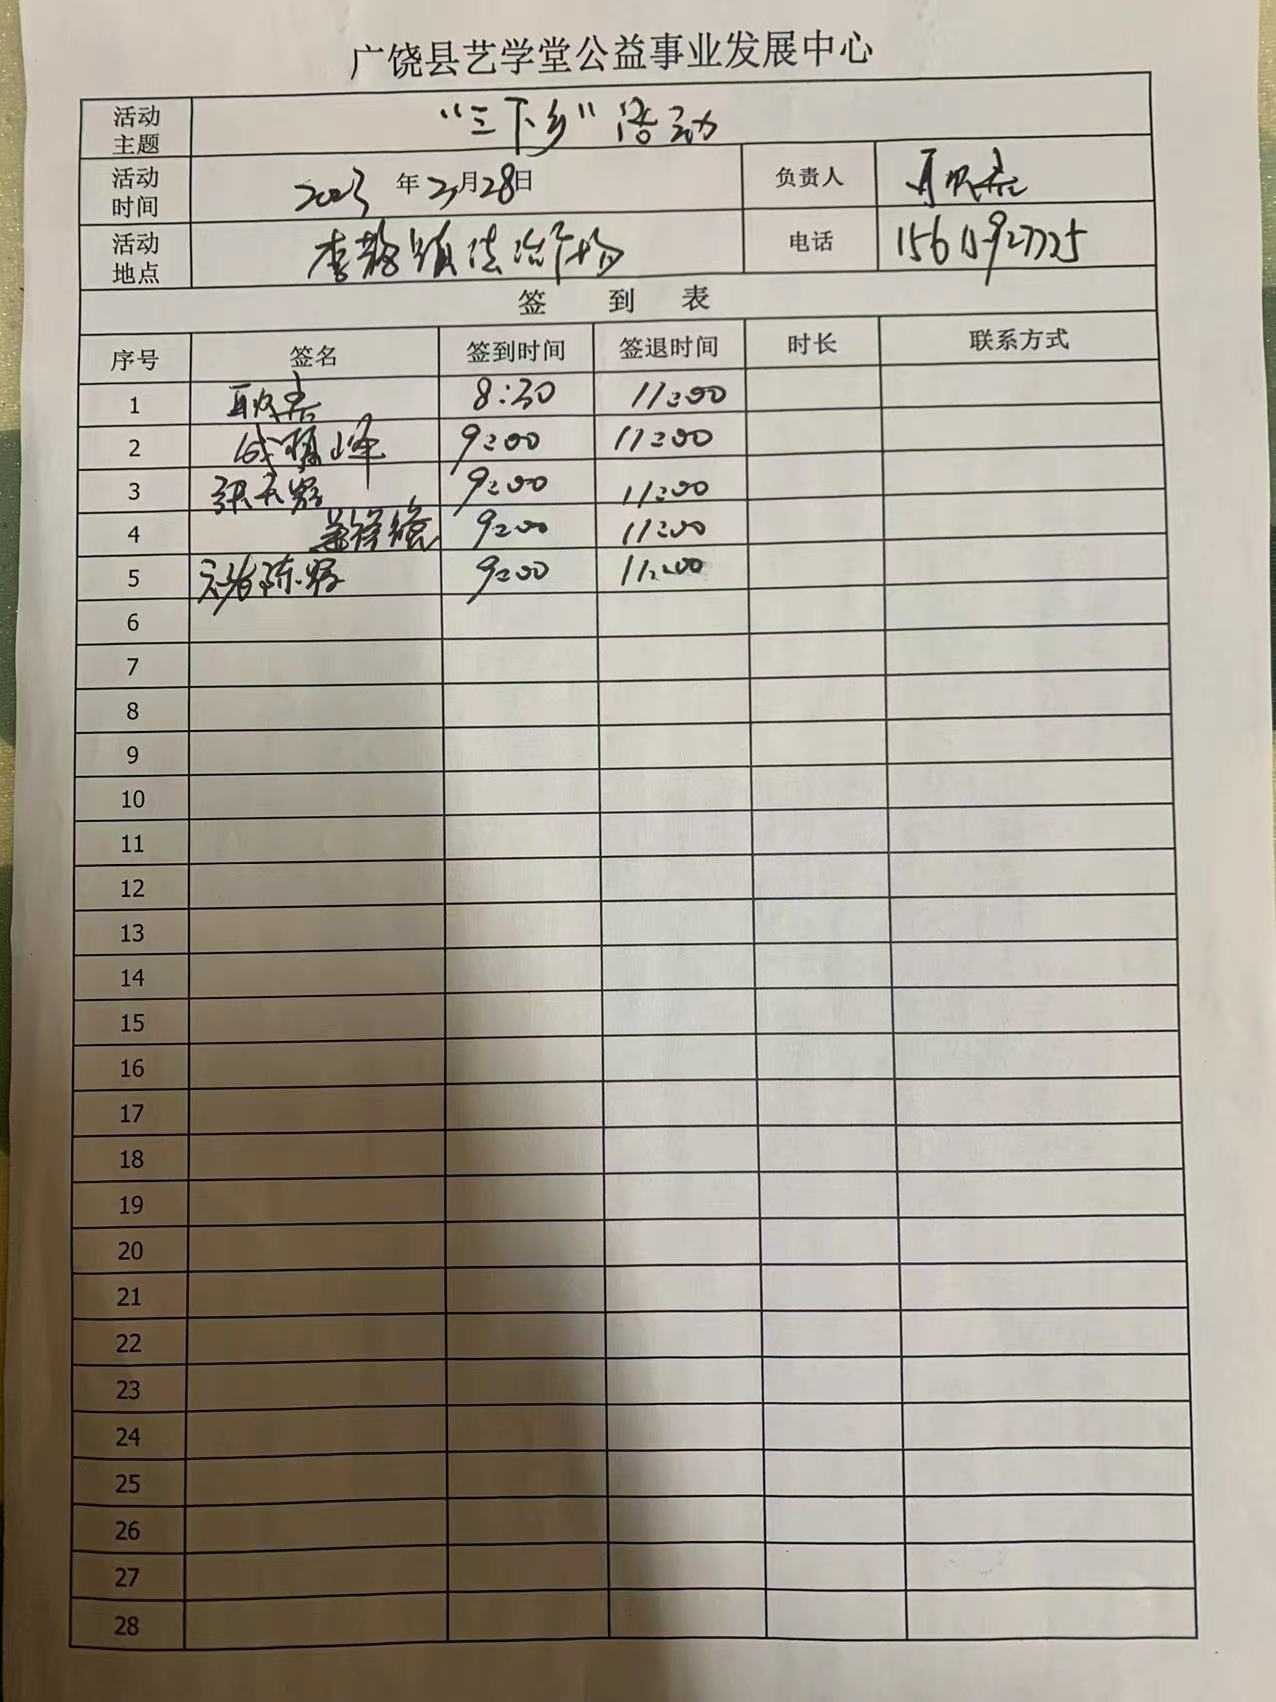 广饶县艺学堂公益事业发展中心
活动主题 "三下乡"活动
活动时间 2023年2月28日 负责人
活动地点 李鹊镇法治广场 电话
签 到 表
序号 签名 签到时间 签退时间 时长 联系方式
1 8:30 11:00
2 9:00 11:00
3 9:00 11:00
4 9:00 11:00
5 9:00 11:00
6
7
8
9
10
11
12
13
14
15
16
17
18
19
20
21
22
23
24
25
26
27
28